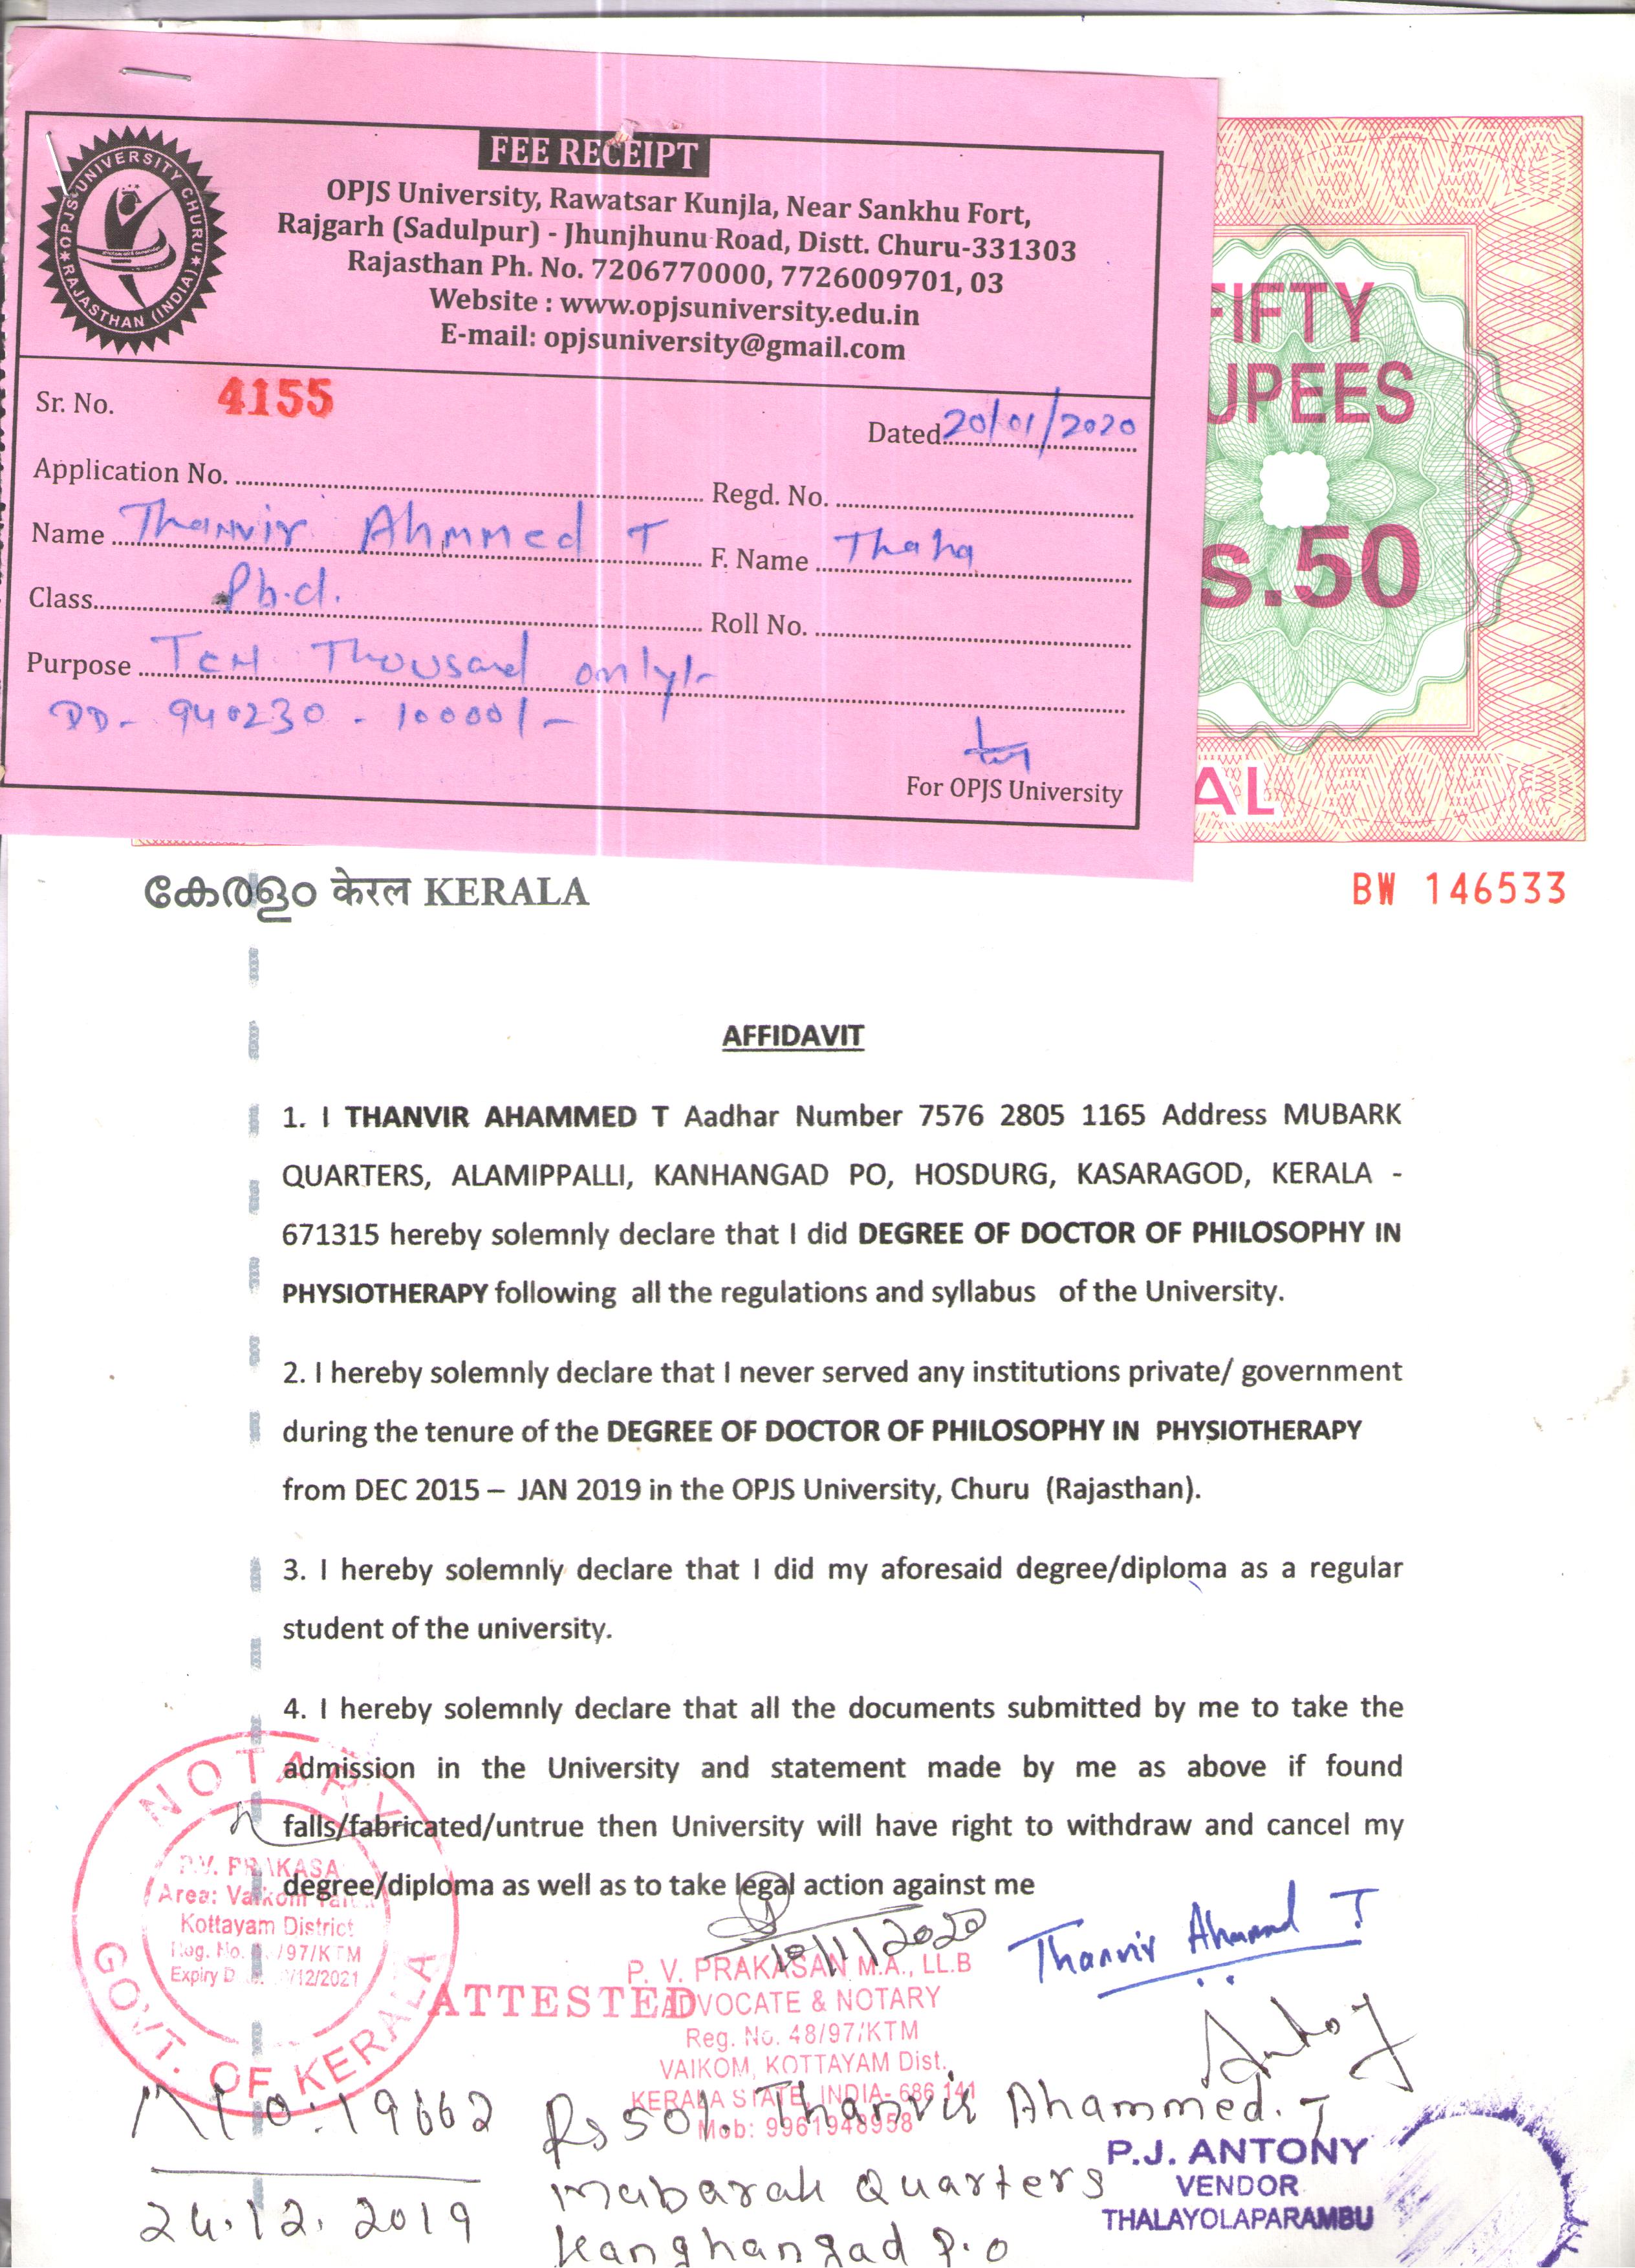 FEE RECEIPT
OPJS University, Rawatsar Kunjla, Near Sankhu Fort,
Rajgarh (Sadulpur) - Jhunjhunu Road, Distt. Churu-331303
Rajasthan Ph. No. 7206770000, 7726009701, 03
Website : www.opjsuniversity.edu.in
E-mail: opjsuniversity@gmail.com
OPJS UNIVERSITY CHURU
RAJASTHAN (INDIA)
Sr. No. 4155
Dated 20/01/2020
Application No. Regd. No.
Name Thanvir Ahmmed T F. Name Thaha
Class Ph.d. Roll No.
Purpose Ten Thousand only/-
DD - 940230 - 10000/-
For OPJS University
FIFTY
UPEES
s.50
AL
കേരളം केरल KERALA
BW 146533
AFFIDAVIT
1. I THANVIR AHAMMED T Aadhar Number 7576 2805 1165 Address MUBARK
QUARTERS, ALAMIPPALLI, KANHANGAD PO, HOSDURG, KASARAGOD, KERALA -
671315 hereby solemnly declare that I did DEGREE OF DOCTOR OF PHILOSOPHY IN
PHYSIOTHERAPY following all the regulations and syllabus of the University.
2. I hereby solemnly declare that I never served any institutions private/ government
during the tenure of the DEGREE OF DOCTOR OF PHILOSOPHY IN PHYSIOTHERAPY
from DEC 2015 – JAN 2019 in the OPJS University, Churu (Rajasthan).
3. I hereby solemnly declare that I did my aforesaid degree/diploma as a regular
student of the university.
4. I hereby solemnly declare that all the documents submitted by me to take the
admission in the University and statement made by me as above if found
falls/fabricated/untrue then University will have right to withdraw and cancel my
degree/diploma as well as to take legal action against me
NOTARY
P.V. PRAKASA
Area: Vaikom
Kottayam District
/97/KTM
/12/2021
GOVT. OF KERALA
ATTESTED
10/1/2020
P. V. PRAKASAN M.A., LL.B
ADVOCATE & NOTARY
Reg. No. 48/97/KTM
VAIKOM, KOTTAYAM Dist.
KERALA STATE, INDIA- 686 141
Mob: 9961948958
Thanvir Ahammed T
Antony
No: 19662
24.12.2019
Rs 50/. Thanvir Ahammed. T
Mubarak Quarters
Kanghangad P.O
P.J. ANTONY
VENDOR
THALAYOLAPARAMBU